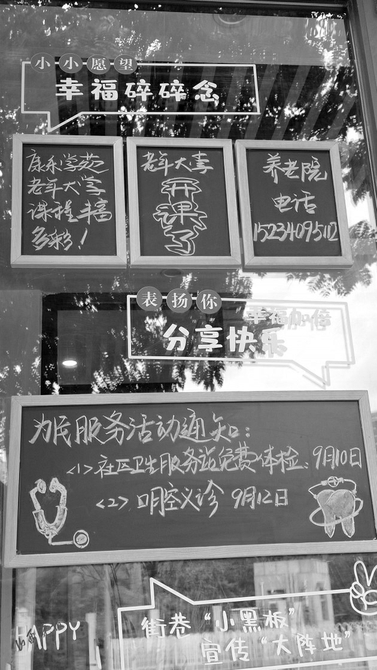 小小愿望
幸福碎碎念
老年大学
课程丰富
多彩！
老年大事
开
课
了
养老院
电话
15234095112
表扬你
幸福加倍
分享快乐
为民服务活动通知：
<1>社区卫生服务站免费体检：9月10日
<2>口腔义诊 9月12日
HAPPY
街巷“小黑板”
宣传“大阵地”